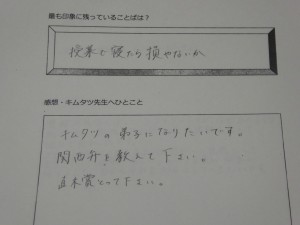 最も印象に残っていることばは？
授業で寝たら損やないか
感想・キムタツ先生へひとこと
キムタツの弟子になりたいです。
関西弁を教えて下さい。
直木賞とって下さい。